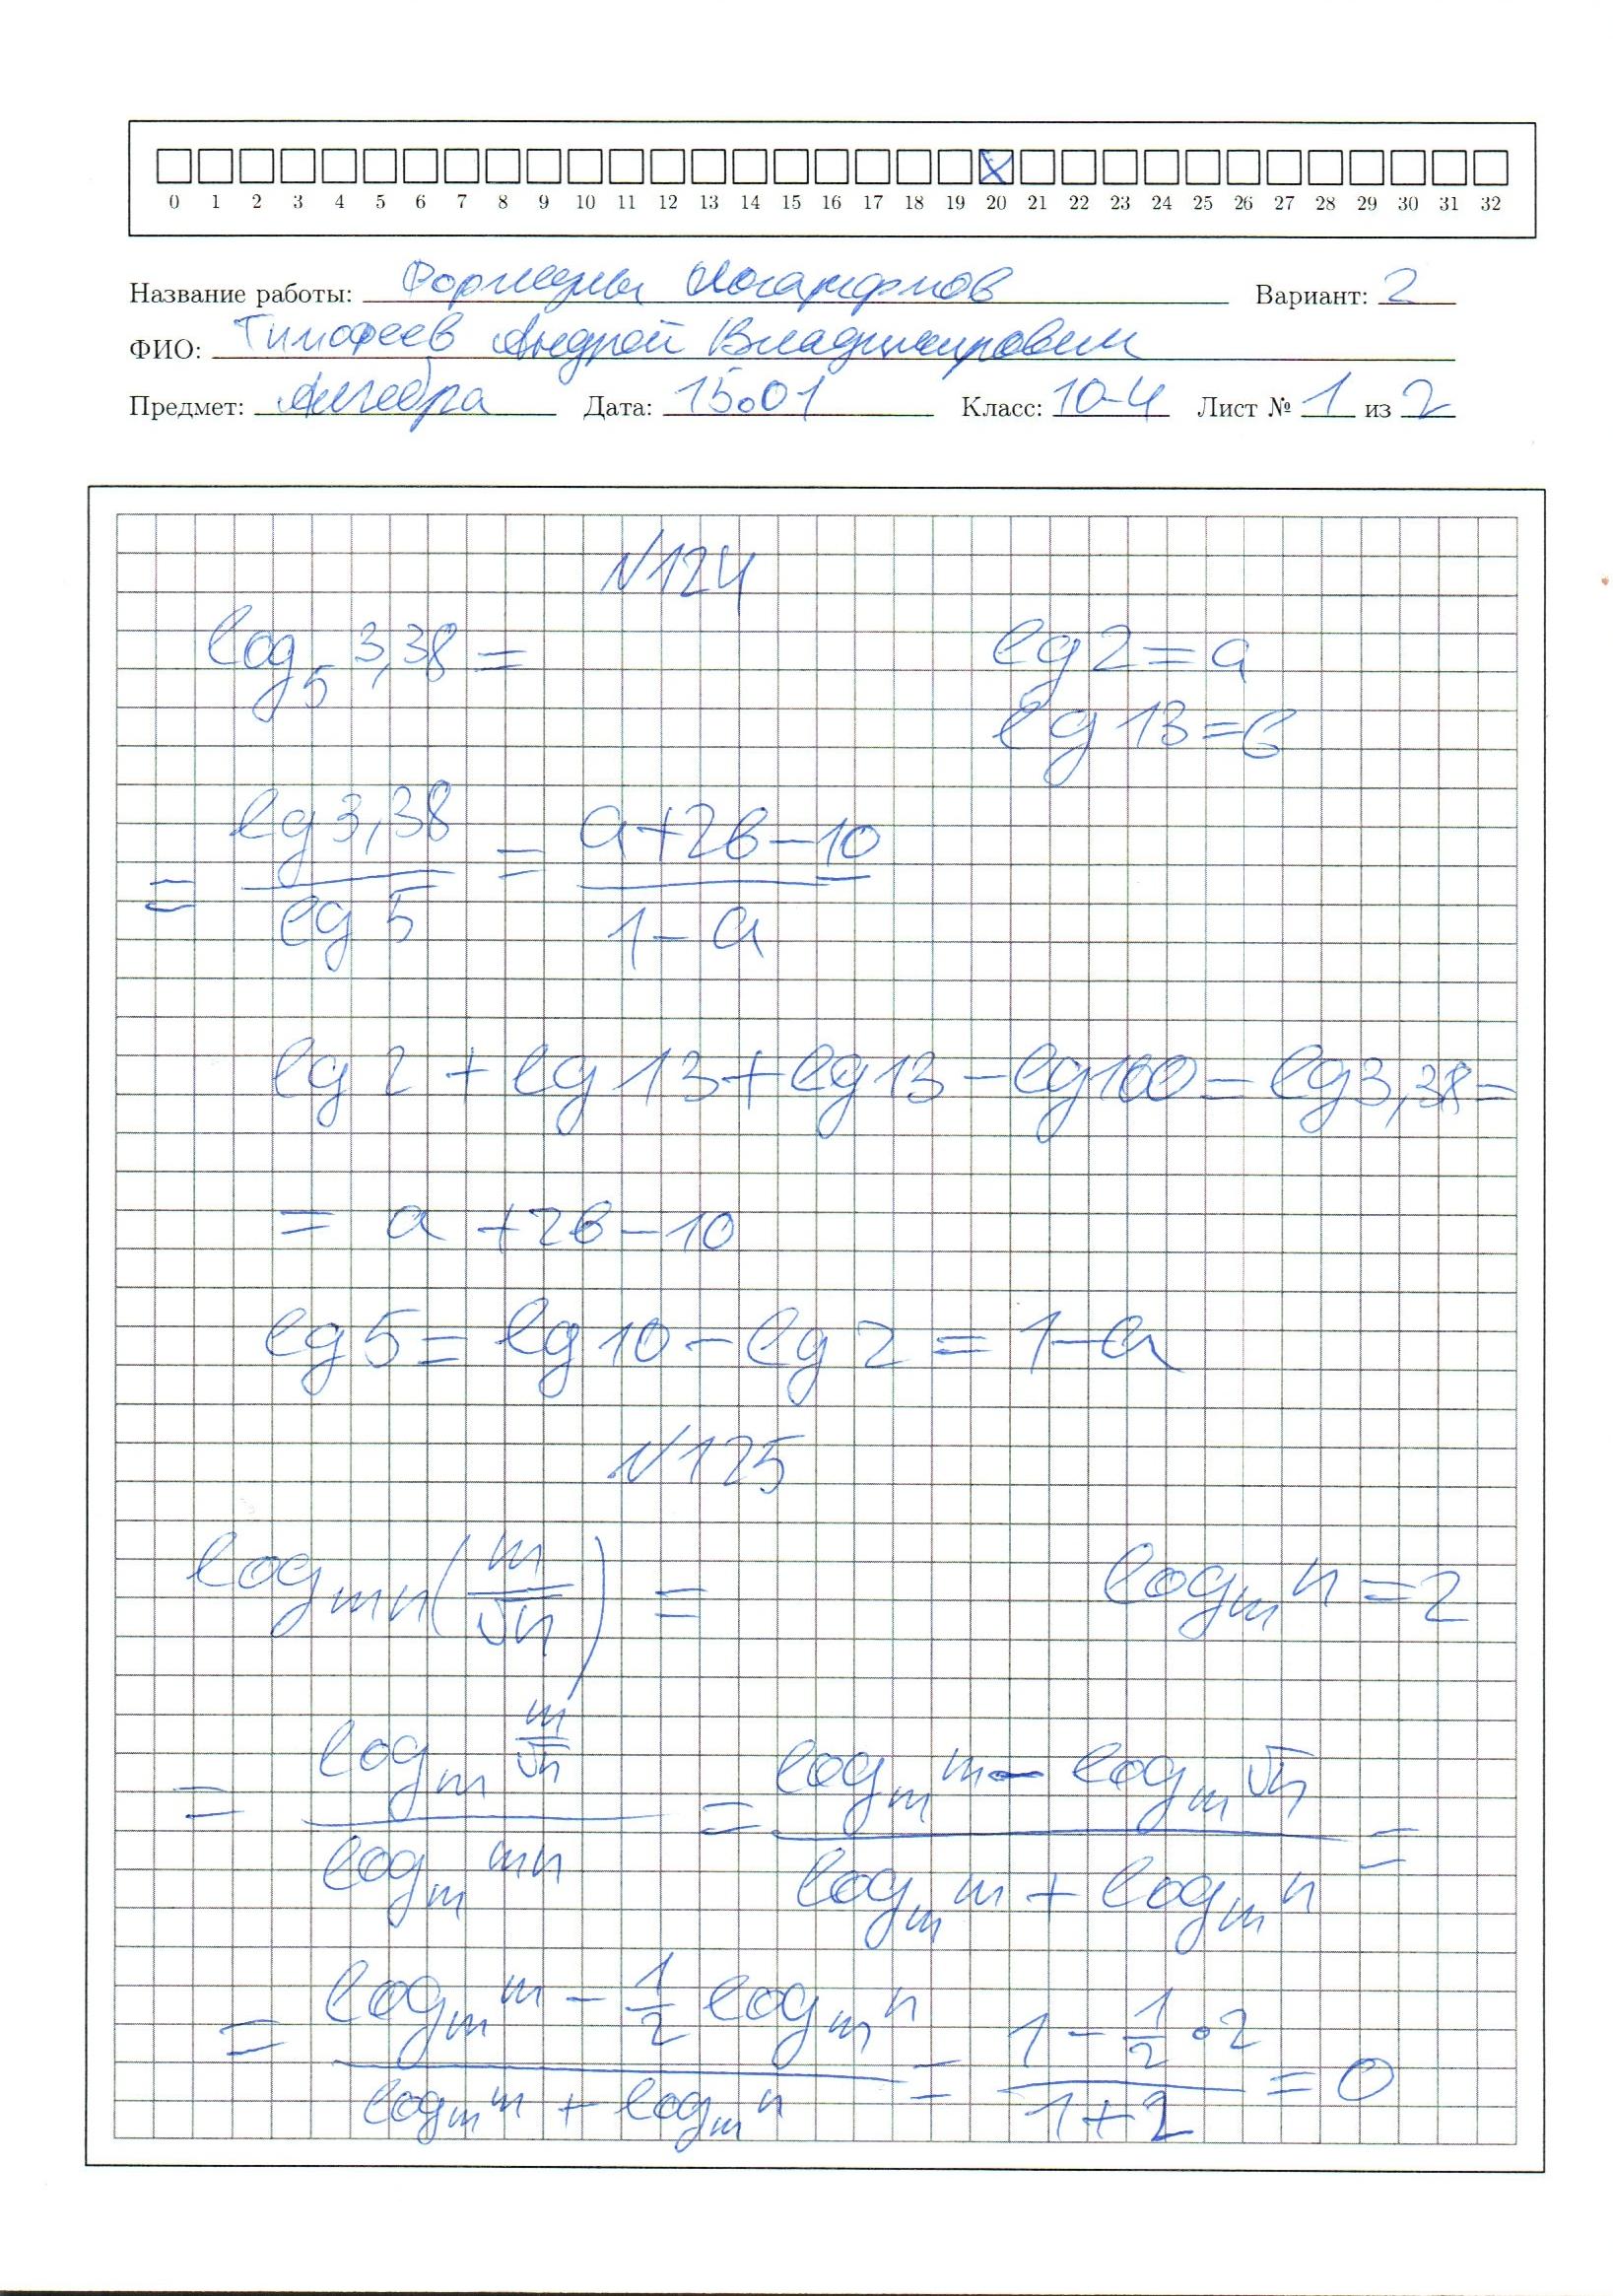 0 1 2 3 4 5 6 7 8 9 10 11 12 13 14 15 16 17 18 19 20 21 22 23 24 25 26 27 28 29 30 31 32
Название работы: Формулы Логарифмов Вариант: 2
ФИО: Тимофеев Андрей Владимирович
Предмет: Алгебра Дата: 15.01 Класс: 10-4 Лист № 1 из 2
N124
log₅ 3,38 = lg 2 = a
lg 13 = в
= (lg 3,38)/(lg 5) = (a+2в-10)/(1-a)
lg 2 + lg 13 + lg 13 - lg 100 = lg 3,38 =
= a + 2в - 10
lg 5 = lg 10 - lg 2 = 1 - a
N125
log_mn (m/√n) = log_m n = 2
= (log_m m/√n)/(log_m mn) = (log_m m - log_m √n)/(log_m m + log_m n) =
= (log_m m - 1/2 log_m n)/(log_m m + log_m n) = (1 - 1/2 · 2)/(1+2) = 0